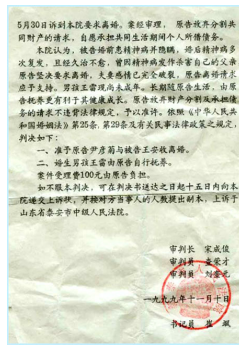 5月30日诉到本院要求离婚。案经审理，原告放弃分割共
同财产的请求，自愿承担共同生活期间个人所借债务。
本院认为，被告婚前患精神病并隐瞒，婚后精神病多
次复发，且经久治不愈，曾因精神病发作杀害自己的父亲
原告坚决要求离婚。夫妻感情已完全破裂，原告离婚请求
应予支持。男孩王雷现尚未成年。长期随原告生活，由原
告抚养更有利于其健康成长。原告放弃财产分割及承担债
务的请求不违背法律规定，予以准许。依照《中华人民共
和国婚姻法》第25条、第29条及有关民事法律政策之规定，
判决如下：
一、准予原告尹彦菊与被告王安收离婚。
二、婚生男孩王雷由原告自行抚养。
案件受理费100元由原告负担。
如不服本判决，可在判决书送达之日起十五日内向本
院递交上诉状，并按对方当事人的人数提出副本，上诉于
山东省泰安市中级人民法院。
审判长 宋成俊
审判员 娄荣才
审判员 刘荃元
一九九九年十一月十日
书记员